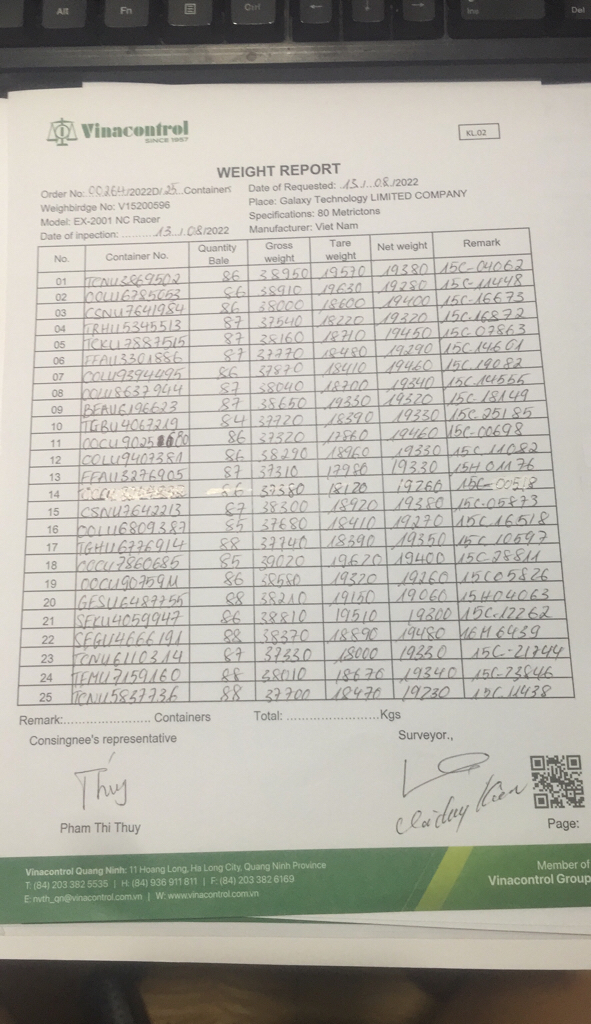 Alt Fn Ctrl Ins Del
Vinacontrol
SINCE 1957
KL.02
WEIGHT REPORT
Order No: 00264/2022D/25 Containers Date of Requested: 13/08/2022
Weighbirdge No: V15200596 Place: Galaxy Technology LIMITED COMPANY
Model: EX-2001 NC Racer Specifications: 80 Metrictons
Date of inpection: ......... 13/08/2022 Manufacturer: Viet Nam
No. Container No. Quantity Bale Gross weight Tare weight Net weight Remark
01 TCNU3869502 86 38950 19570 19380 15C-04062
02 OOLU6785053 86 38910 19630 19280 15C-11448
03 CSNU7641984 86 38000 18600 19400 15C-16673
04 TRHU5345513 87 37540 18220 19320 15C-16872
05 TCKU7887515 87 38160 18710 19450 15C-07863
06 FFAU3301886 87 37770 18480 19290 15C-14661
07 OOLU9394495 86 37870 18410 19460 15C-19082
08 OOLU8637944 87 38040 18700 19340 15C-14555
09 BEAU6196623 87 38650 19330 19320 15C-18149
10 TGBU4067219 84 37720 18390 19330 15C-25185
11 86 37320 17860 19460 15C-00698
12 OOLU9407381 86 38290 18960 19330 15C-11082
13 FFAU3276905 87 37310 17980 19330 15H 01176
14 86 37380 18120 19260
15 CSNU7642213 87 38300 18920 19380 15C-05873
16 OOLU6809387 85 37680 18410 19270 15C 16518
17 TGHU6776914 88 37740 18390 19350 15C 10597
18 OOCU7860685 85 39020 19620 19400 15C-28811
19 86 38580 19320 19260 15C05826
20 GESU6487755 88 38210 19150 19060 15H04063
21 SEKU4059947 86 38810 19510 19300 15C-12262
22 SEGU4666191 88 38370 18890 19480 16M 6439
23 TCNU6110314 87 37330 18000 19330 15C-21744
24 TEMU7159160 88 38010 18670 19340 15C-23846
25 TCNU5837736 88 37700 18470 19230 15C 11438
Remark:..................... Containers Total: ......................Kgs
Consingnee's representative Surveyor.,
Thúy
Pham Thi Thuy Page:
Vinacontrol Quang Ninh: 11 Hoang Long, Ha Long City, Quang Ninh Province Member of
T: (84) 203 382 5535 | H: (84) 936 911 811 | F: (84) 203 382 6169 Vinacontrol Group
E: nvth_qn@vinacontrol.com.vn | W: www.vinacontrol.com.vn